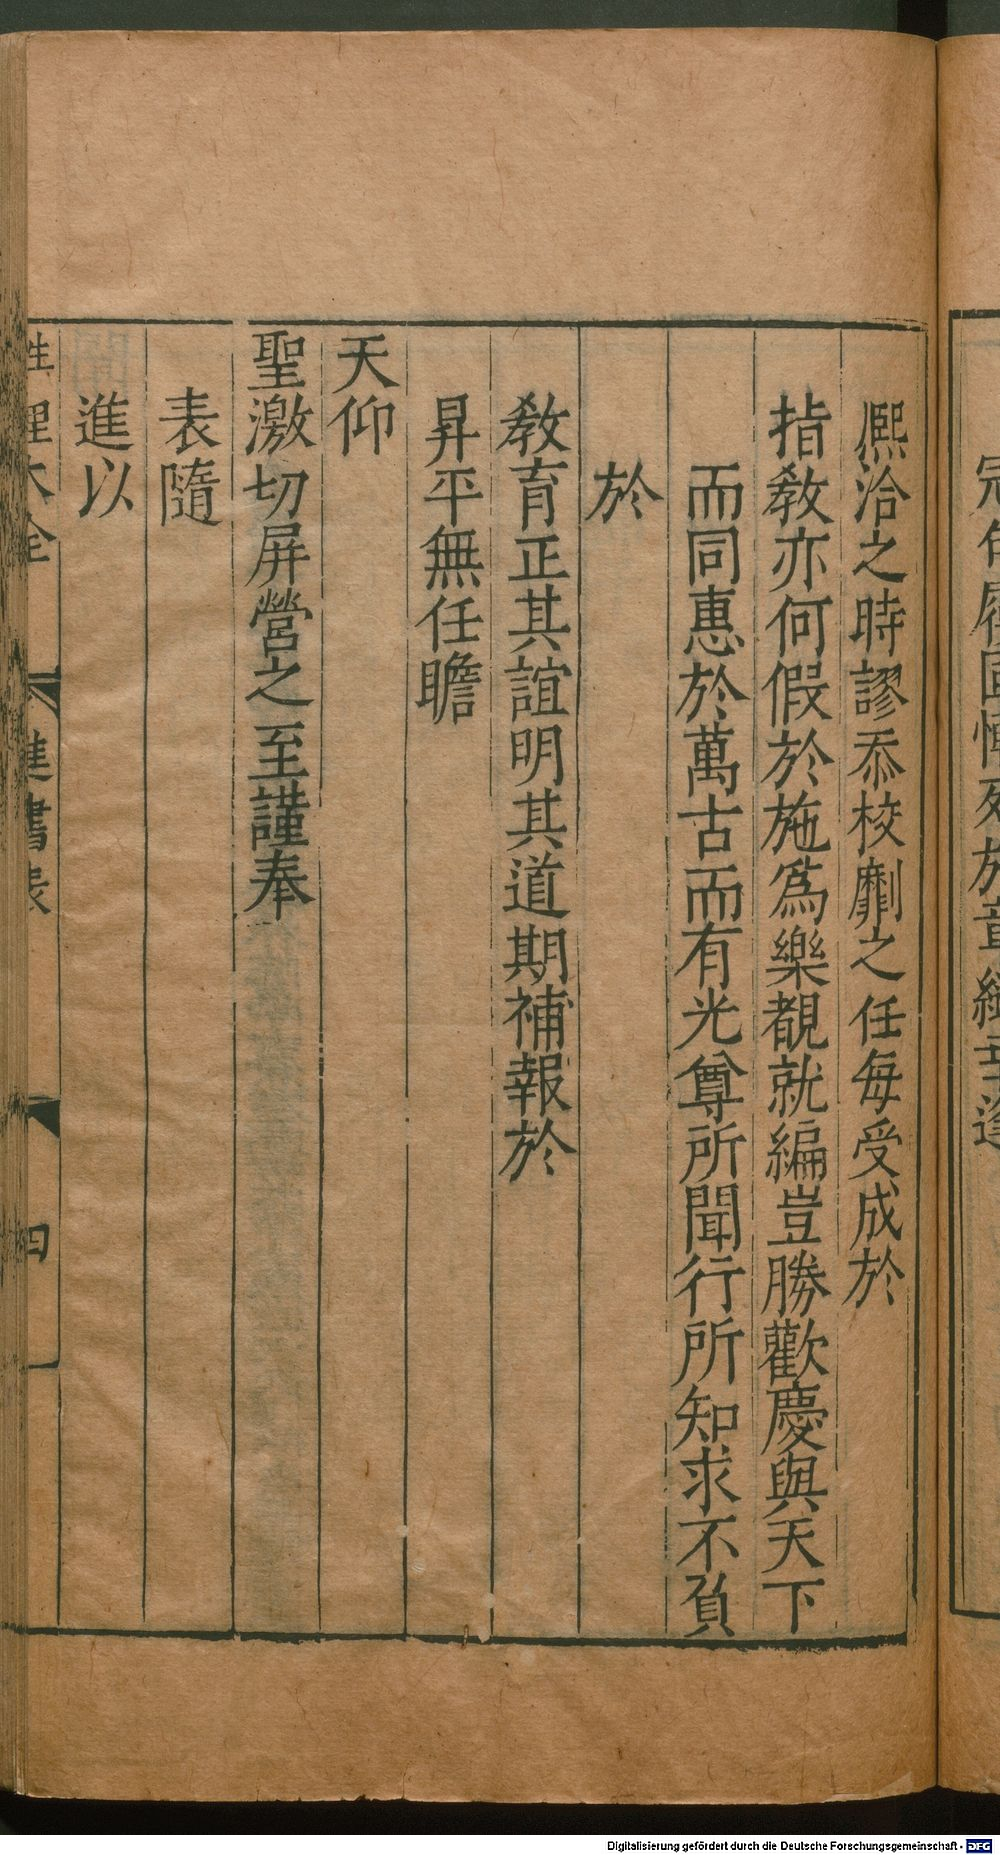 熈洽之時謬忝校劘之任每受成於
指敎亦何假於施爲樂覩就編豈勝歡慶與天下
而同惠於萬古而有光尊所聞行所知求不負
於
敎育正其誼明其道期補報於
昇平無任瞻
天仰
聖激切屏營之至謹奉
表隨
進以
性理大全
進書表
四
Digitalisierung gefördert durch die Deutsche Forschungsgemeinschaft - DFG